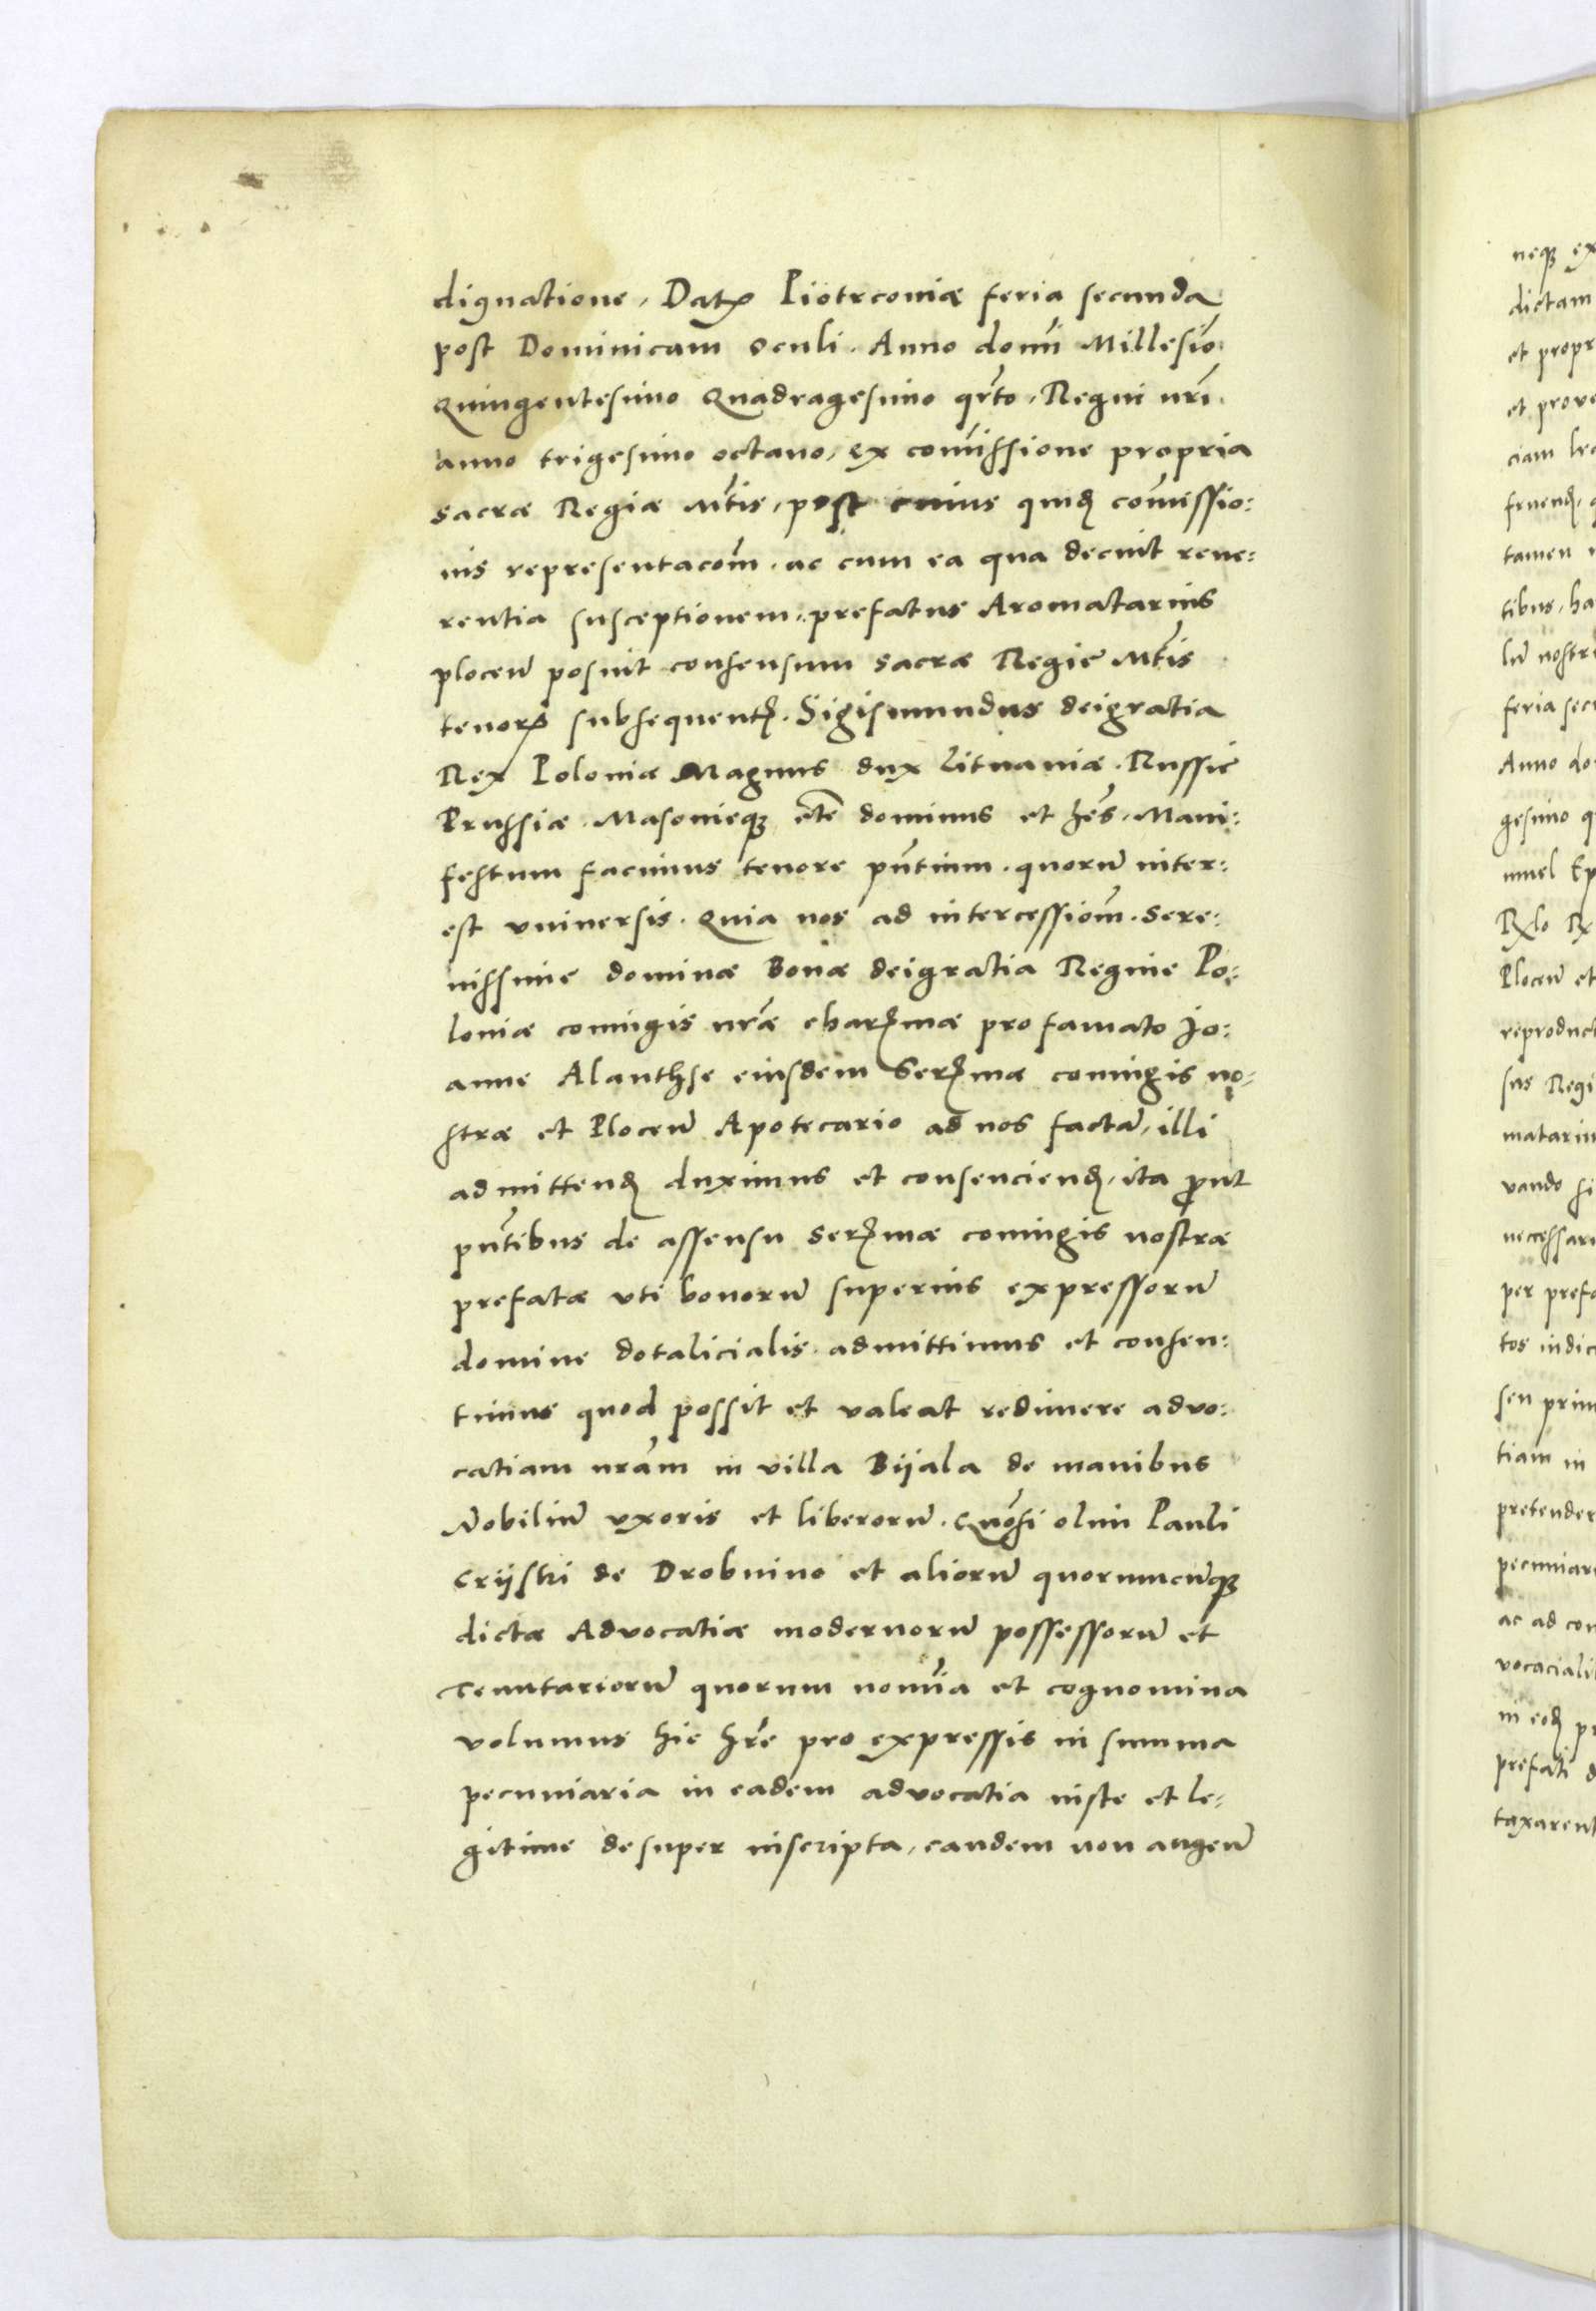 dignatione, Dat₎ Piotrconiæ feria secunda
post Dominicam oculi. Anno domī Millesīo
Quingentesimo Quadragesimo qrto, Regni nrī
anno trigesimo octavo, ex comīssione propria
sacræ Regiæ Mtis, post cuius quidȝ comissio:
nis representacōm. ac cum ea qua decuit reue:
rentia susceptionem, prefatus Aromatarius
plocen̄ posuit consensum sacræ Regie Mtis
tenorȝ subsequentȝ. Sigismundus deigratia
Rex Poloniæ Magnus dux Lituaniæ. Russie
Prussiæ. Masonieqȝ etē dominus et hēs. Mani:
festum facimus tenore pn̄tium. quorū inter:
est vniuersis. Quia nos ad intercessiōm. sere:
nissime dominæ Bonæ deigratia Regine Po:
loniæ coniugis nrǣ charȝmæ pro famato Jo:
anne Alanthse eiusdem Serȝmæ coniugis no:
stræ et Plocen̄ Apotecario ad nos factā, illi
admittendȝ duximus et consenciendȝ, ita prout
pn̄tibus de assensu serȝmæ coniugis nostræ
prefatæ vti bonorū superius expressorū
domine dotalicialis admittimus et consen:
timus quod possit et valeat redimere advo:
catiam nrām in villa Bijala de manibus
Nobiliū vxoris et liberorū. Gn̄osi olim Pauli
Srijski de Drobnino et aliorū quorumcūqȝ
dictæ Advocatiæ modernorū possessorū et
Tenutariorū quorum nomīa et cognomina
volumus hic hr̄e pro expressis in summa
pecuniaria in eadem advocatia iuste et le:
gitime desuper inscripta, eandem non augen̄
neqȝ ex
dictam
et propr
et prove
ciam
fruendȝ,
tamen
tibus, ha
lū nostr
feria sec
Anno do
gesimo q
muel Ep
Plocen̄ et
reproduct
sus Regi
matariu
vando si
necessari
per prefa
tos indic
seu prim
tiam in
pretender
pecuniar
ac ad con
vocaciali
in eodȝ pr
prefati d
taxarent